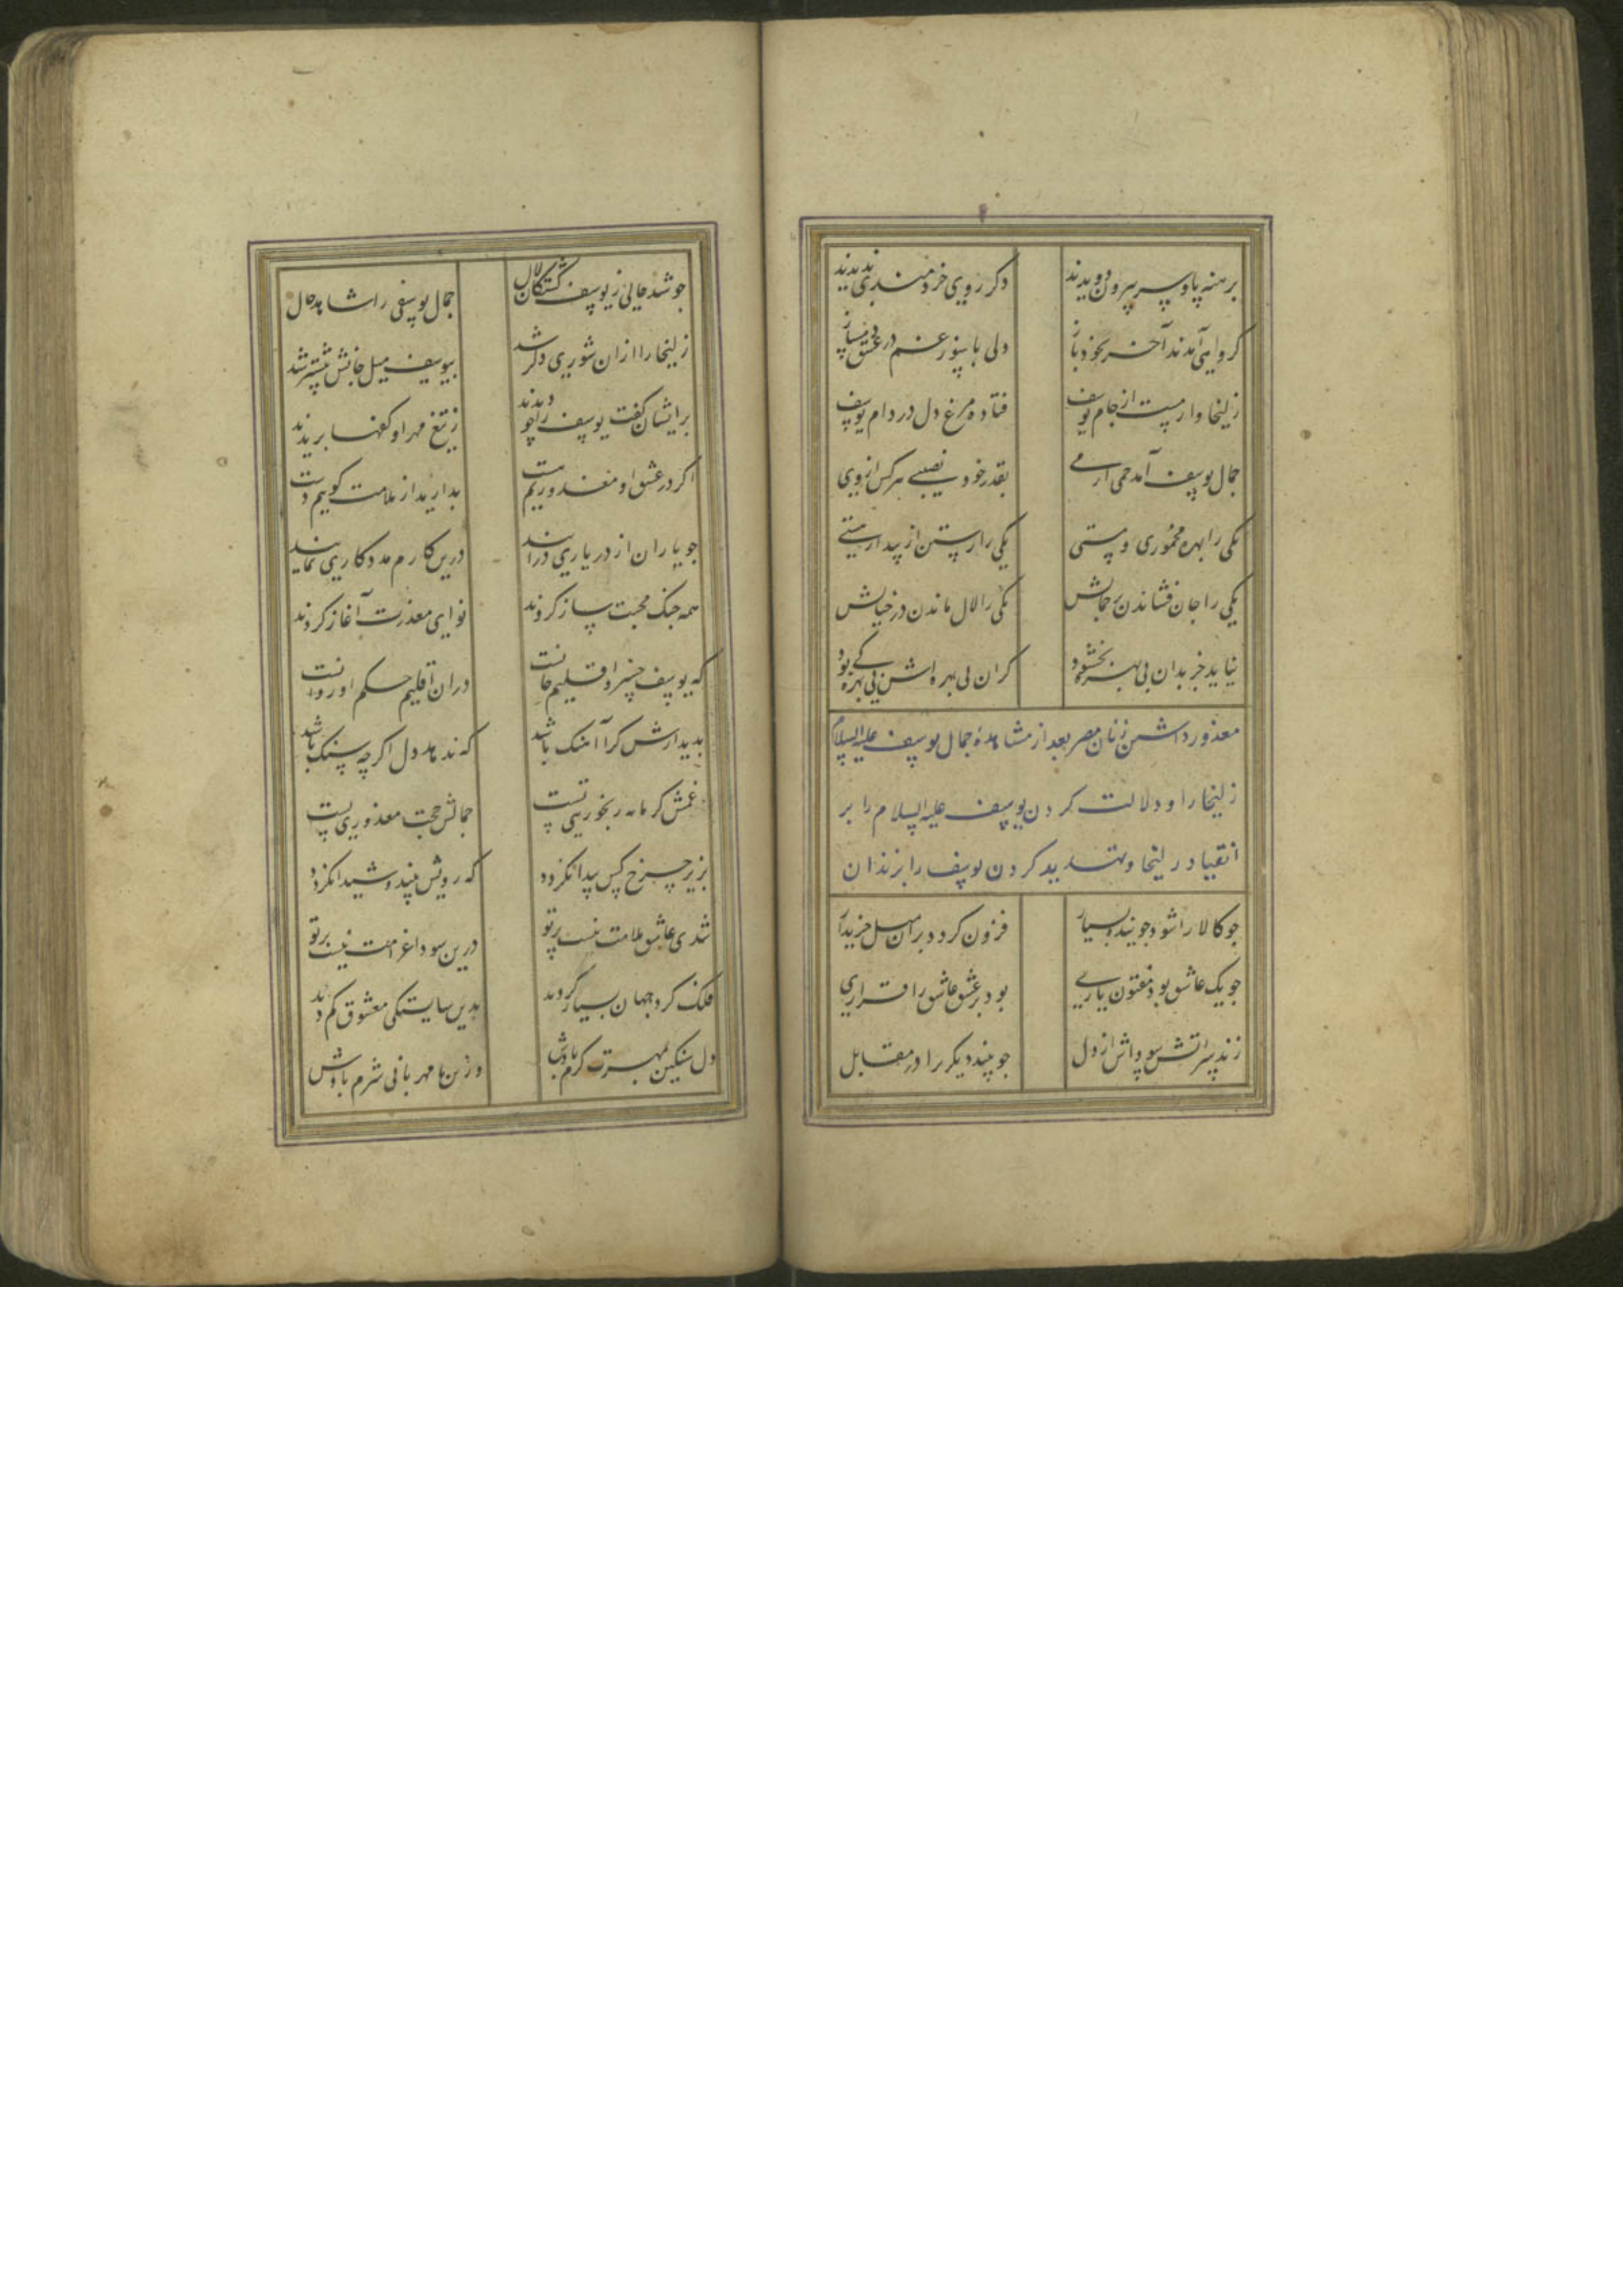 برهنه پا و سر بیرون دویدند دکر روی خردمندی ندیدند
کروهی آمدند آخر بخود باز ولی با سوز عشق و درد دمساز
زلیخا وار مست از جام یوسف فتاده مرغ دل در دام یوسف
جمال یوسف آمد خمی از می بقدر خود نصیب هر کس از وی
یکی را بهره مخموری و مستی یکی را رستن از پندار هستی
یکی را جان فشاندن بر جمالش یکی را لال ماندن در خیالش
نباید جز بدان بی بهره بخشود کزان می بهره اش بی بهرکی بود
معذور داشتن زنان مصر بعد از مشاهدهٔ جمال یوسف علیه السلام
زلیخا را و دلالت کردن یوسف علیه السلام را بر
انقیاد زلیخا و تهدید کردن یوسف را بزندان
جو کالا را شود جوینده بسیار فزون کردد بران میل خریدار
جو یک عاشق بود مفتون یاری بود بر عشق عاشق را قراری
زند سر آتش سوداش از دل جو بیند دیکری را در مقابل
جو شد حالی ز یوسف کشتکان لال جمال یوسفی را شاهد حال
زلیخا را ازان شوری دکر شد بیوسف میل جانش بیشتر شد
برایشان کفت یوسف را جو دیدند ز تیغ مهر او کفها بریدند
اکر در عشق او معذوریم هست بدارید از ملامت کوییم دست
جو یاران از در یاری درآیند درین کارم مددکاری نمایند
همه جنک محبت ساز کردند نوای معذرت آغاز کردند
که یوسف خسرو اقلیم جانست دران اقلیم حکم او روانست
بدیدارش کرا آهنک باشد که ندهد دل اکرچه سنک باشد
غمش کر مایه رنجوری تست جمالش حجت معذوری تست
بزیر چرخ کس پیدا نکردد که رویش بیند و شیدا نکردد
شدی عاشق ملامت نیست بر تو درین سودا غرامت نیست بر تو
فلک کرد جهان بسیار کردید بدین شایستکی معشوق کم دید
دل سنکین بمهرت کرم بادش وزین نامهربانی شرم بادش